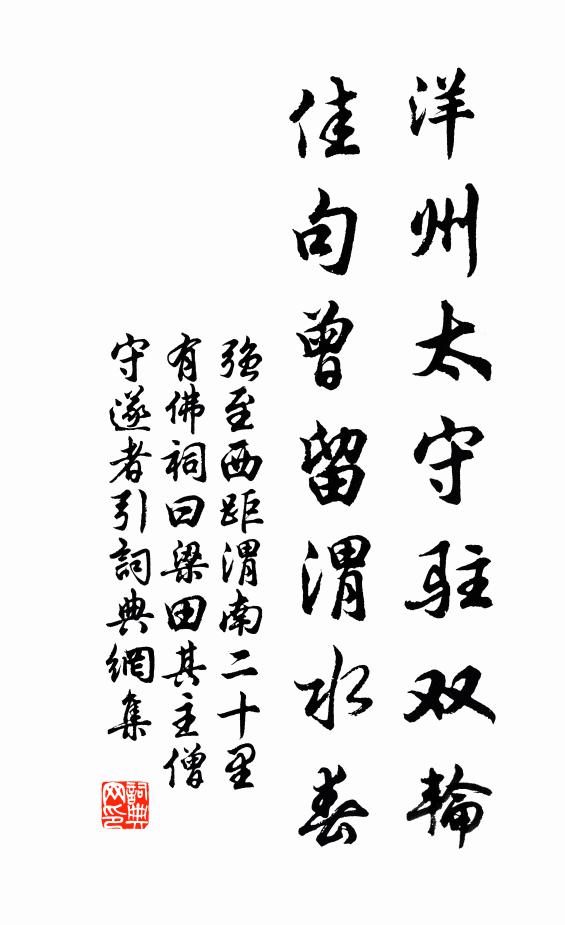 洋州太守駐双輪
佳句曾留渭水春
強至西距渭南二十里
有佛祠曰梁田其主僧
守遂者引詞典網集
詞典
网印